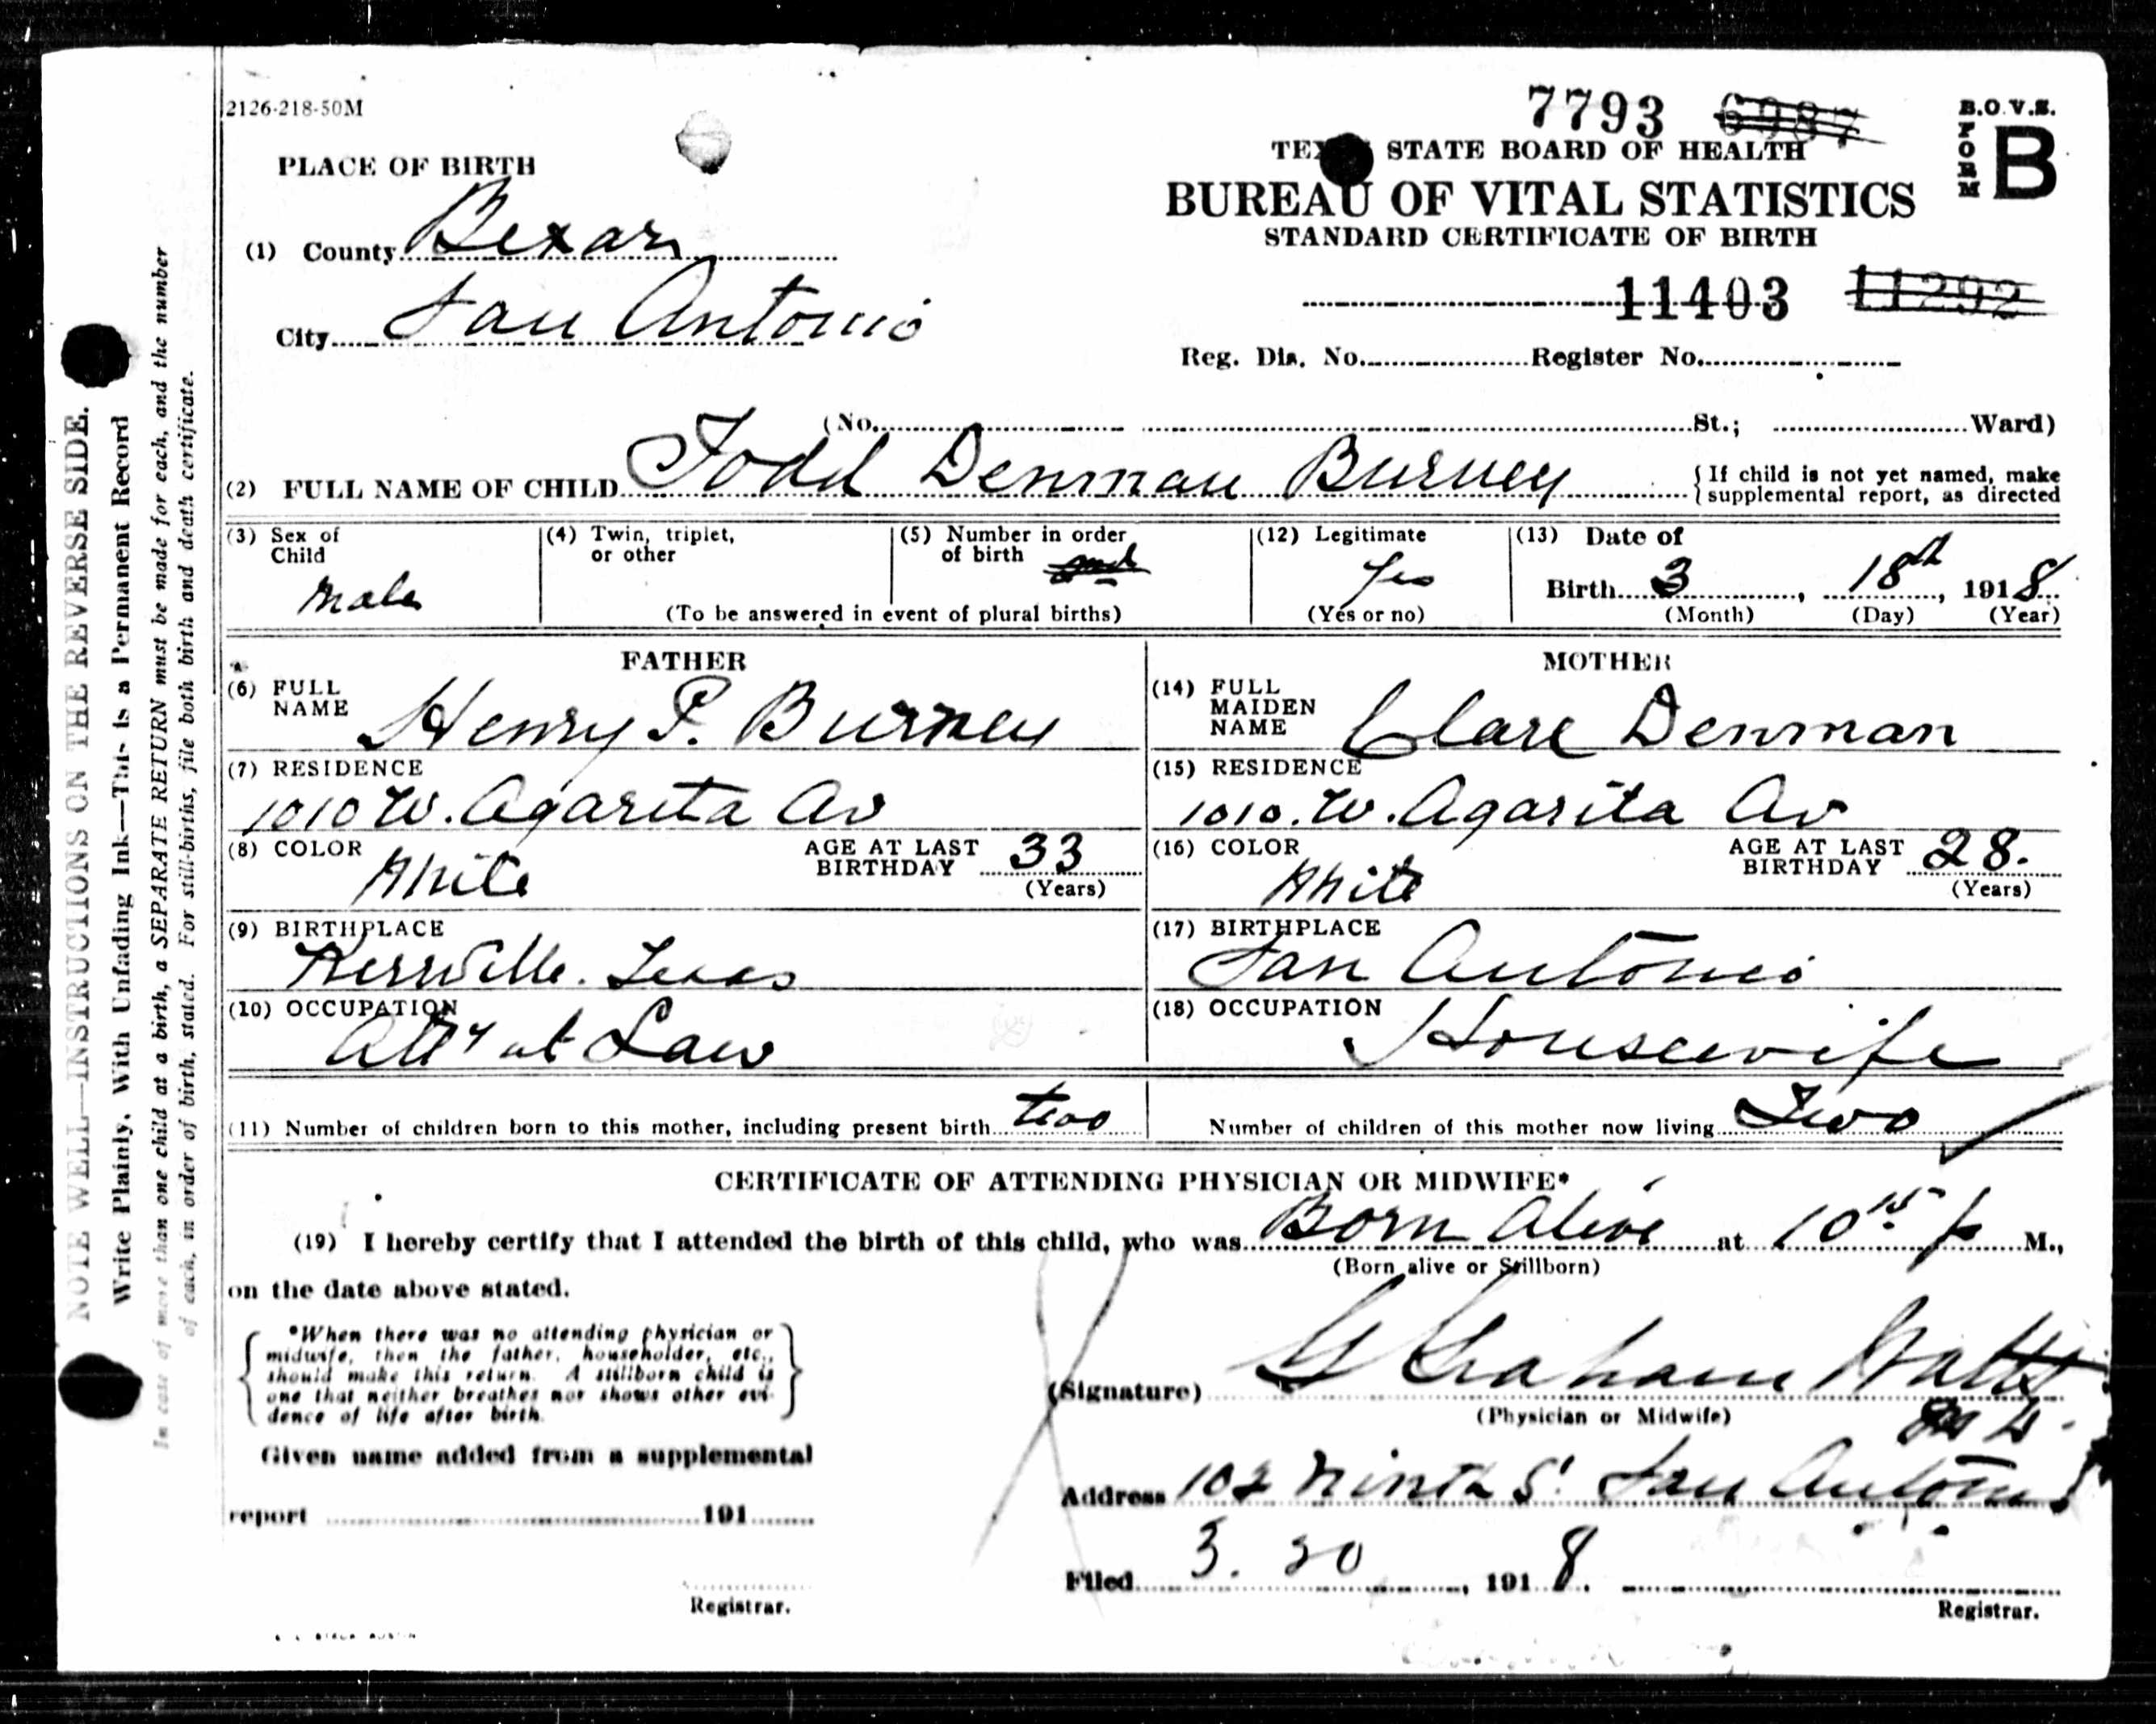 2126-218-50M
7793 6987
B.O.V.S.
FORM B
TEXAS STATE BOARD OF HEALTH
BUREAU OF VITAL STATISTICS
STANDARD CERTIFICATE OF BIRTH
PLACE OF BIRTH
(1) County Bexar
City San Antonio
11403 11292
Reg. Dis. No. Register No.
(No. St.; Ward)
(2) FULL NAME OF CHILD Todd Denman Burney {If child is not yet named, make
{supplemental report, as directed
(3) Sex of
Child
Male
(4) Twin, triplet,
or other
(5) Number in order
of birth
(To be answered in event of plural births)
(12) Legitimate
Yes
(Yes or no)
(13) Date of
Birth 3, 18th, 1918
(Month) (Day) (Year)
FATHER
(6) FULL
NAME Henry P. Burney
(7) RESIDENCE
1010 W. Agarita Av
(8) COLOR White AGE AT LAST
BIRTHDAY 33
(Years)
(9) BIRTHPLACE
Kerrville. Texas
(10) OCCUPATION
Atty at Law
MOTHER
(14) FULL
MAIDEN
NAME Clare Denman
(15) RESIDENCE
1010. W. Agarita Av
(16) COLOR White AGE AT LAST
BIRTHDAY 28.
(Years)
(17) BIRTHPLACE
San Antonio
(18) OCCUPATION
Housewife
(11) Number of children born to this mother, including present birth two
Number of children of this mother now living Two
CERTIFICATE OF ATTENDING PHYSICIAN OR MIDWIFE*
(19) I hereby certify that I attended the birth of this child, who was Born Alive at 10 15 p M.,
(Born alive or Stillborn)
on the date above stated.
{*When there was no attending physician or
midwife, then the father, householder, etc.,
should make this return. A stillborn child is
one that neither breathes nor shows other evi-
dence of life after birth.}
(Signature) G Graham Watts
(Physician or Midwife) M D.
Given name added from a supplemental
report 191
Registrar.
Address 102 Ninth St San Antonio
Filed 3. 20, 1918.
Registrar.
NOTE WELL—INSTRUCTIONS ON THE REVERSE SIDE.
Write Plainly, With Unfading Ink—This is a Permanent Record
In case of more than one child at a birth, a SEPARATE RETURN must be made for each, and the number
of each, in order of birth, stated. For still-births, file both birth and death certificate.